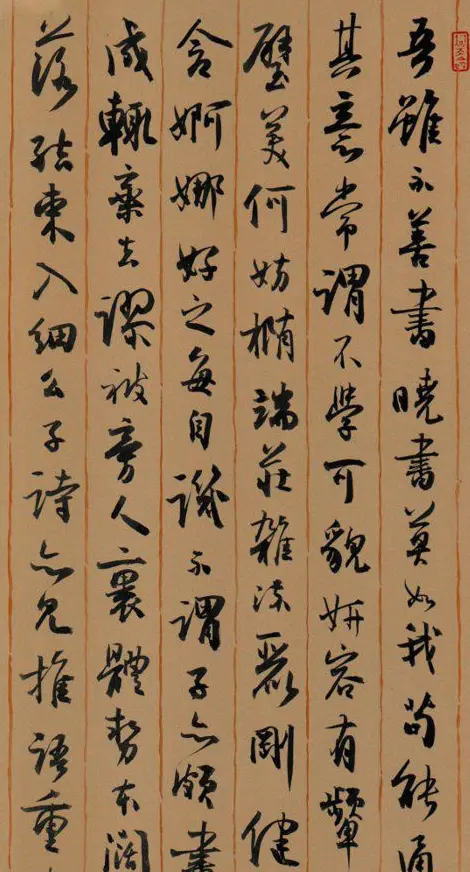 吾雖不善書曉書莫如我苟能通
其意常謂不學可貌妍容有顰
璧美何妨橢端莊雜流麗剛健
含婀娜好之每自譏不謂子亦頗書
成輒棄去謬被旁人裹體勢本闊
落結束入細么子詩亦見推語重